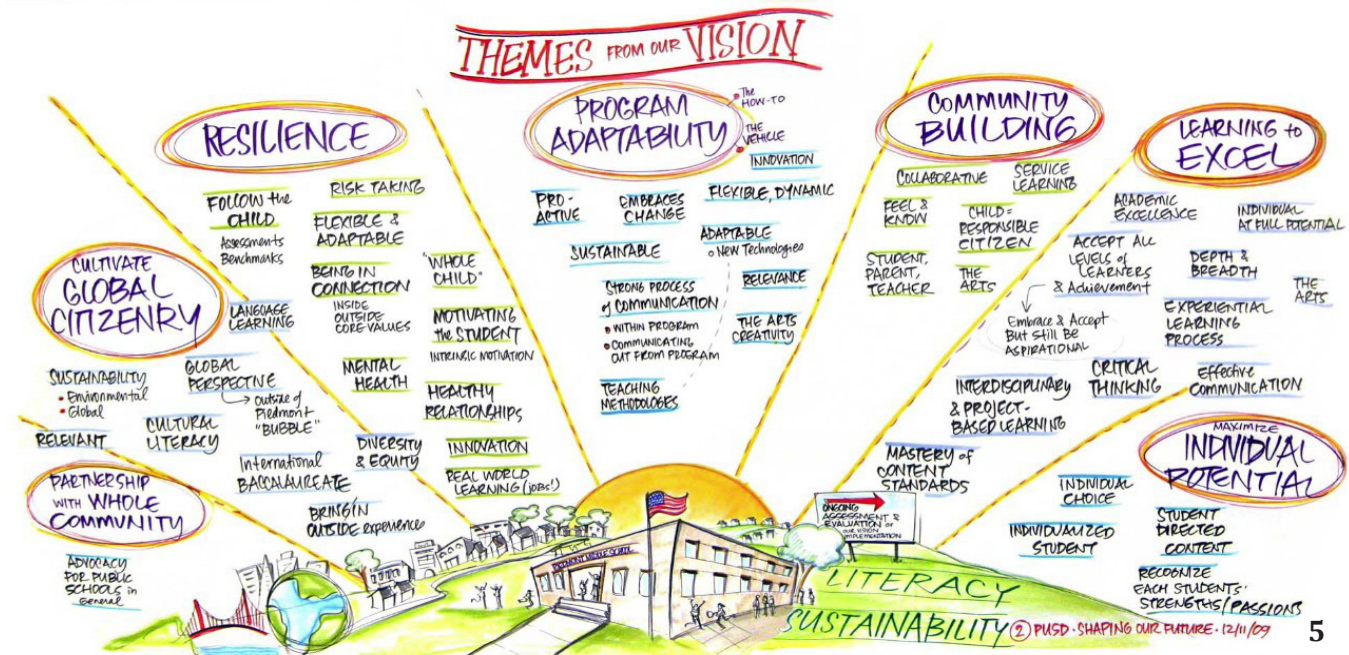 THEMES FROM OUR VISION
RESILIENCE
FOLLOW the
CHILD
Assessments
Benchmarks
RISK TAKING
FLEXIBLE &
ADAPTABLE
BEING IN
CONNECTION
INSIDE
OUTSIDE
CORE VALUES
MENTAL
HEALTH
DIVERSITY
& EQUITY
"WHOLE
CHILD"
MOTIVATING
the STUDENT
INTRINSIC MOTIVATION
HEALTHY
RELATIONSHIPS
INNOVATION
REAL WORLD
LEARNING (jOBS!)
CULTIVATE
GLOBAL
CITIZENRY
LANGUAGE
LEARNING
SUSTAINABILITY
• Environmental
• Global
GLOBAL
PERSPECTIVE
outside of
Piedmont
"BUBBLE"
RELEVANT
CULTURAL
LITERACY
International
BACCALAUREATE
BRING IN
OUTSIDE experiences
PARTNERSHIP
WITH WHOLE
COMMUNITY
ADVOCACY
FOR PUBLIC
SCHOOLS in
general
PROGRAM
ADAPTABILITY
• The
HOW-TO
THE
VEHICLE
INNOVATION
PRO-
ACTIVE
EMBRACES
CHANGE
FLEXIBLE, DYNAMIC
SUSTAINABLE
ADAPTABLE
o New Technologies
STRONG PROCESS
of COMMUNICATION
• WITHIN PROGRAM
• COMMUNICATING
OUT FROM PROGRAM
RELEVANCE
THE ARTS
CREATIVITY
TEACHING
METHODOLOGIES
COMMUNITY
BUILDING
COLLABORATIVE
SERVICE
LEARNING
FEEL &
KNOW
CHILD =
RESPONSIBLE
CITIZEN
STUDENT,
PARENT,
TEACHER
THE
ARTS
LEARNING to
EXCEL
ACADEMIC
EXCELLENCE
INDIVIDUAL
AT FULL POTENTIAL
ACCEPT ALL
LEVELS of
LEARNERS
& Achievement
Embrace & Accept
But Still Be
ASPIRATIONAL
DEPTH &
BREADTH
THE
ARTS
EXPERIENTIAL
LEARNING
PROCESS
CRITICAL
THINKING
Effective
COMMUNICATION
INTERDISCIPLINARY
& PROJECT-
BASED LEARNING
MASTERY of
CONTENT
STANDARDS
MAXIMIZE
INDIVIDUAL
POTENTIAL
INDIVIDUAL
CHOICE
INDIVIDUALIZED
STUDENT
STUDENT
DIRECTED
CONTENT
RECOGNIZE
EACH STUDENTS'
STRENGTHS/PASSIONS
ONGOING
ASSESSMENT &
EVALUATION of
OUR VISION
IMPLEMENTATION
LITERACY
SUSTAINABILITY
② PUSD · SHAPING OUR FUTURE · 12/11/09
5